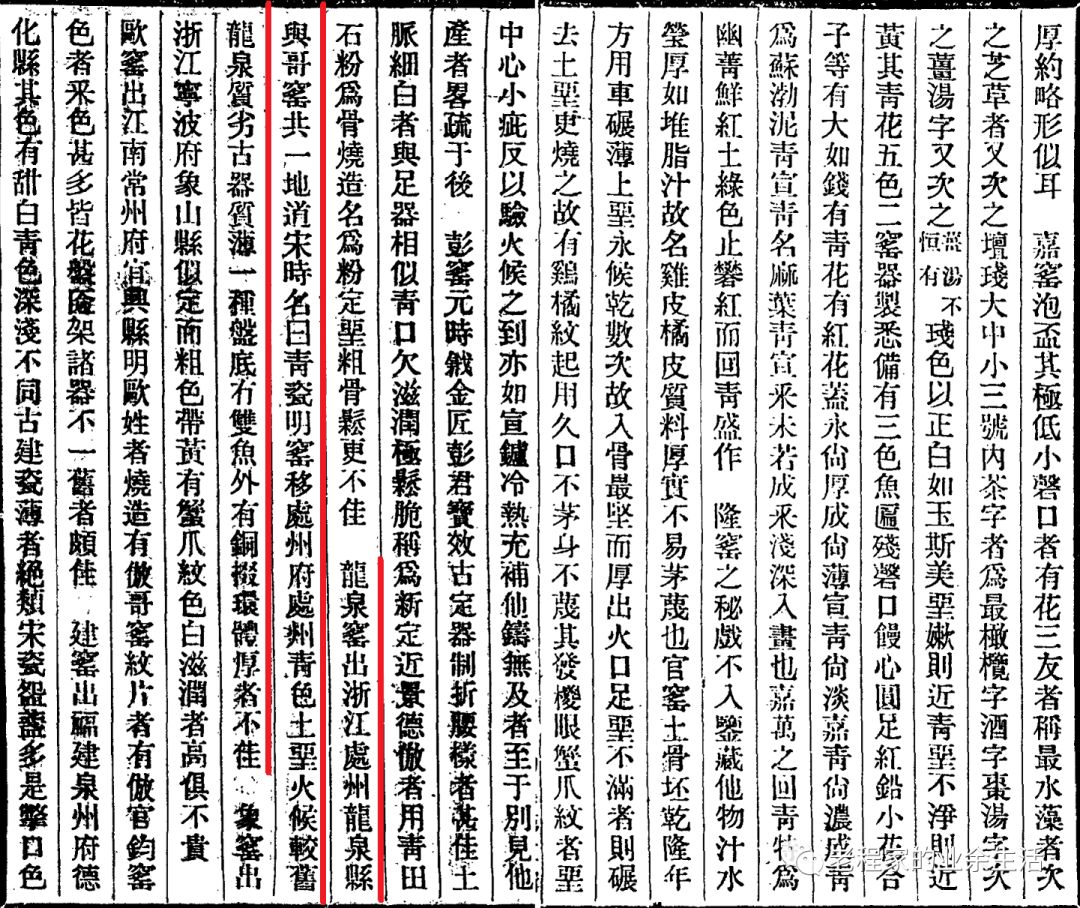 厚約略形似耳　嘉窑泡盃其極低小磬口者有花三友者稱最水藻者次
之芝草者又次之壇琖大中小三號内茶字者爲最橄欖字酒字棗湯字次
之薑湯字又次之薑湯不恒有琖色以正白如玉斯美堊嫩則近青堊不淨則近
黃其青花五色二窰器製悉備有三色魚匾殘磬口饅心圓足紅鉛小花合
子等有大如錢有青花有紅花蓋永尙厚成尙薄宣青尙淡嘉青尙濃成青
爲蘇渤泥青宣青名麻葉青宣釆未若成釆淺深入畫也嘉萬之回青特爲
幽菁鮮紅土綠色止礬紅而回青盛作　隆窑之秘戲不入鑒藏他物汁水
瑩厚如堆脂汁故名雞皮橘皮質料厚實不易茅蔑也官窰土骨坯乾隆年
方用車碾薄上堊永候乾數次故入骨最堅而厚出火口足堊不滿者則碾
去土堊更燒之故有鷄橘紋起用久口不茅身不蔑其發㯶眼蟹爪紋者堊
中心小疵反以驗火候之到亦如宣鑪冷熱充補他鑄無及者至于別見他
產者畧疏于後　彭窑元時戧金匠彭君寶效古定器制折腰樣者甚佳土
脈細白者與足器相似青口欠滋潤極鬆脆稱爲新定近景德倣者用青田
石粉爲骨燒造名爲粉定堊粗骨鬆更不佳　龍泉窑出浙江處州龍泉縣
與哥窑共一地道宋時名曰青瓷明窑移處州府處州青色土堊火候較舊
龍泉質劣古器質薄一種盤底有雙魚外有銅掇環體厚者不佳　象窑出
浙江寧波府象山縣似定而粗色帶黃有蟹爪紋色白滋潤者高俱不貴
歐窑出江南常州府宜興縣明歐姓者燒造有倣哥窑紋片者有倣官鈞窑
色者釆色甚多皆花盤奩架諸器不一舊者頗佳　建窑出福建泉州府德
化縣其色有甜白青色深淺不同古建瓷薄者絕類宋瓷盌盞多是撆口色
老程家的业余生活